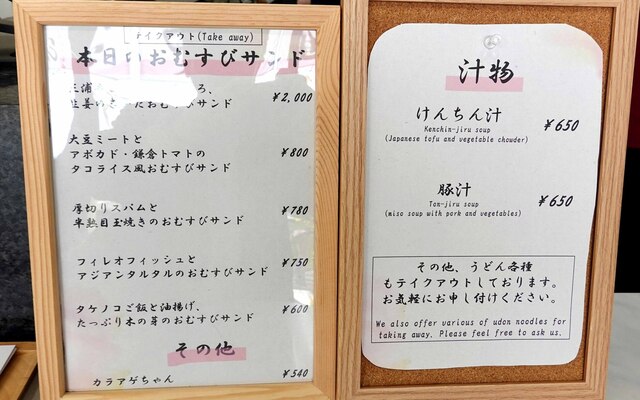 テイクアウト(Take away)
本日のおむすびサンド
三浦
生姜 おむすびサンド
¥2,000
大豆ミートと
アボカド・鎌倉トマトの
タコライス風おむすびサンド
¥800
厚切りスパムと
半熟目玉焼きのおむすびサンド
¥780
フィレオフィッシュと
アジアンタルタルのおむすびサンド
¥750
タケノコご飯と油揚げ、
たっぷり木の芽のおむすびサンド
¥600
その他
カラアゲちゃん
¥540
汁物
けんちん汁
¥650
Kenchin-jiru soup
(Japanese tofu and vegetable chowder)
豚汁
¥650
Ton-jiru soup
(miso soup with pork and vegetables)
その他、うどん各種
もテイクアウトしております。
お気軽にお申し付けください。
We also offer various of udon noodles for
taking away. Please feel free to ask us.